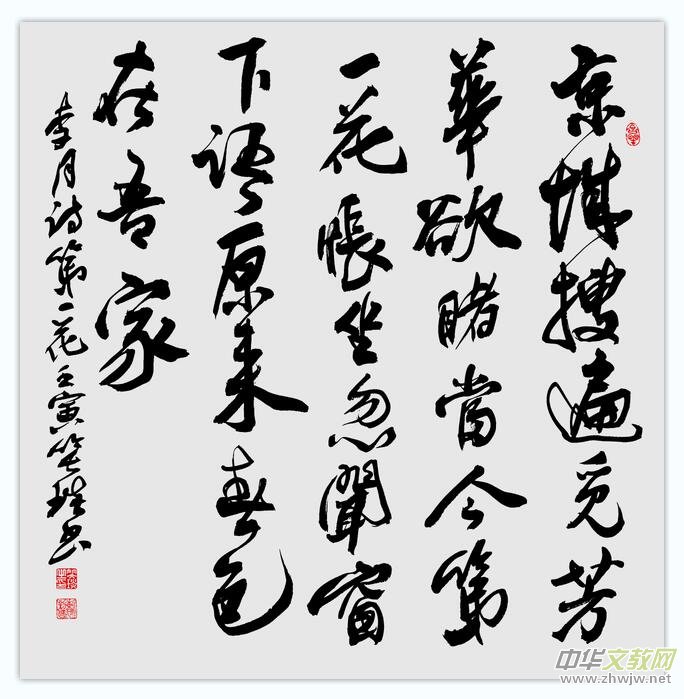 京城搜遍觅芳
華欲睹當今第
一花帳坐忽聞窗
下语原来春色
在吾家
李月诗第一花壬寅笑琰书
中华文教网
www.zhwjw.net